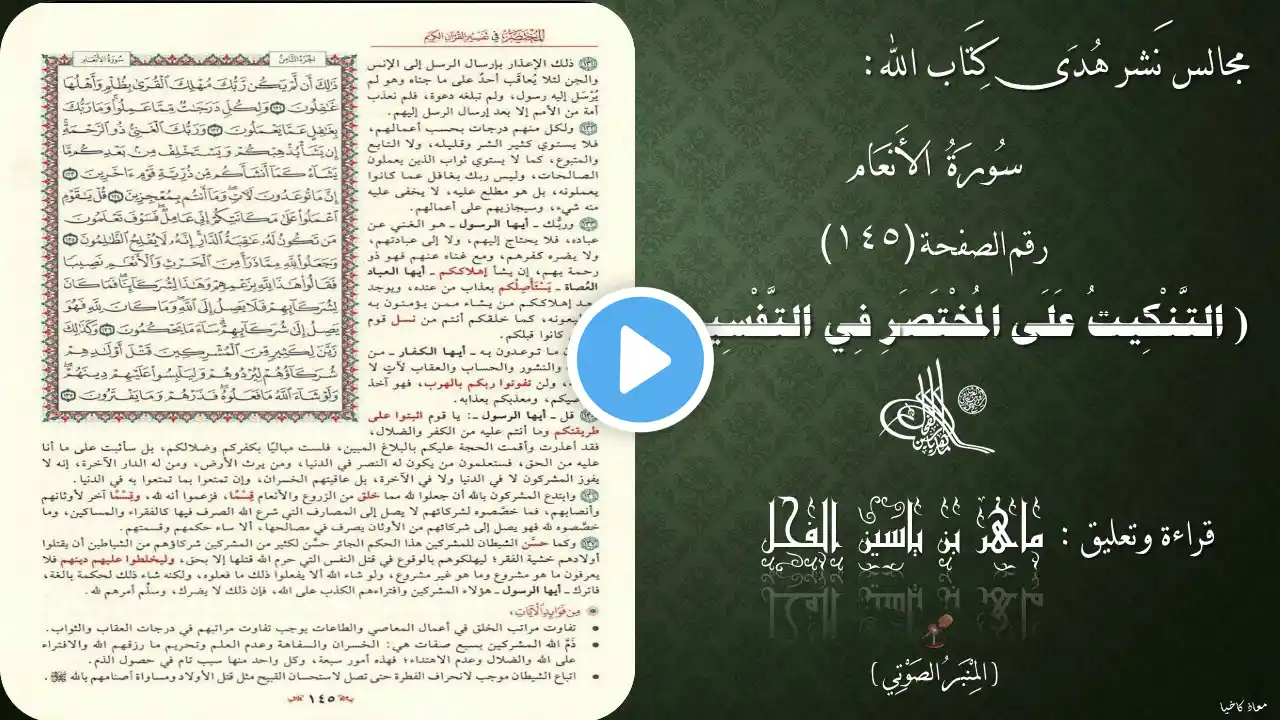 مجالس نَشر هُدَى كِتَاب الله :
سُورَةُ الأَنعَام
رقم الصفحة (١٤٥)
( التَّنْكِيتُ عَلَى المُخْتَصَرِ فِي التَّفْسِي
قراءة وتعليق : ماهر بن ياسين الفحل
(المِنْبَرُ الصَّوْتِي)
معاذ كاخيا
المختصر في تفسير القرآن الكريم
الجزء الثامن
سورة الأنعام
ذَٰلِكَ أَن لَّمْ يَكُن رَّبُّكَ مُهْلِكَ ٱلْقُرَىٰ بِظُلْمٍ وَأَهْلُهَا
غَٰفِلُونَ ١٣١ وَلِكُلٍّ دَرَجَٰتٌ مِّمَّا عَمِلُوا۟ وَمَا رَبُّكَ
بِغَٰفِلٍ عَمَّا يَعْمَلُونَ ١٣٢ وَرَبُّكَ ٱلْغَنِىُّ ذُو ٱلرَّحْمَةِ
إِن يَشَأْ يُذْهِبْكُمْ وَيَسْتَخْلِفْ مِنۢ بَعْدِكُم مَّا
يَشَآءُ كَمَآ أَنشَأَكُم مِّن ذُرِّيَّةِ قَوْمٍ ءَاخَرِينَ ١٣٣
إِنَّ مَا تُوعَدُونَ لَـَٔاتٍ وَمَآ أَنتُم بِمُعْجِزِينَ ١٣٤ قُلْ يَٰقَوْمِ
ٱعْمَلُوا۟ عَلَىٰ مَكَانَتِكُمْ إِنِّى عَامِلٌ فَسَوْفَ تَعْلَمُونَ
مَن تَكُونُ لَهُۥ عَٰقِبَةُ ٱلدَّارِ إِنَّهُۥ لَا يُفْلِحُ ٱلظَّٰلِمُونَ ١٣٥
وَجَعَلُوا۟ لِلَّهِ مِمَّا ذَرَأَ مِنَ ٱلْحَرْثِ وَٱلْأَنْعَٰمِ نَصِيبًا
فَقَالُوا۟ هَٰذَا لِلَّهِ بِزَعْمِهِمْ وَهَٰذَا لِشُرَكَآئِنَا فَمَا كَانَ
لِشُرَكَآئِهِمْ فَلَا يَصِلُ إِلَى ٱللَّهِ وَمَا كَانَ لِلَّهِ فَهُوَ
يَصِلُ إِلَىٰ شُرَكَآئِهِمْ سَآءَ مَا يَحْكُمُونَ ١٣٦ وَكَذَٰلِكَ
زَيَّنَ لِكَثِيرٍ مِّنَ ٱلْمُشْرِكِينَ قَتْلَ أَوْلَٰدِهِمْ
شُرَكَآؤُهُمْ لِيُرْدُوهُمْ وَلِيَلْبِسُوا۟ عَلَيْهِمْ دِينَهُمْ
وَلَوْ شَآءَ ٱللَّهُ مَا فَعَلُوهُ فَذَرْهُمْ وَمَا يَفْتَرُونَ ١٣٧
١٣١ ذلك الإعذار بإرسال الرسل إلى الإنس
والجن لئلا يُعاقَب أحدٌ على ما جناه وهو لم
يُرْسَل إليه رسول، ولم تبلغه دعوة، فلم نعذب
أمة من الأمم إلا بعد إرسال الرسل إليهم.
١٣٢ ولكل منهم درجات بحسب أعمالهم،
فلا يستوي كثير الشر وقليله، ولا التابع
والمتبوع، كما لا يستوي ثواب الذين يعملون
الصالحات، وليس ربك بغافل عما كانوا
يعملونه، بل هو مطلع عليه، لا يخفى عليه
منه شيء، وسيجازيهم على أعمالهم.
١٣٣ وربُّك - أيها الرسول - هو الغني عن
عباده، فلا يحتاج إليهم، ولا إلى عبادتهم،
ولا يضره كفرهم، ومع غناه عنهم فهو ذو
رحمة بهم، إن يشأ إهلاككم - أيها العباد
العُصاة - يَسْتأصِلْكم بعذاب من عنده، ويوجد
بعد إهلاككم من يشاء ممن يؤمنون به
يطيعونه، كما خلقكم أنتم من نسل قوم
كانوا قبلكم.
ن ما توعدون به - أيها الكفار - من
والنشور والحساب والعقاب لآتٍ لا
، ولن تفوتوا ربكم بالهرب، فهو آخذ
صيكم، ومعذبكم بعذابه.
١٣٥ قل - أيها الرسول -: يا قوم اثبتوا على
طريقتكم وما أنتم عليه من الكفر والضلال،
فقد أعذرت وأقمت الحجة عليكم بالبلاغ المبين، فلست مباليًا بكفركم وضلالكم، بل سأثبت على ما أنا
عليه من الحق، فستعلمون من يكون له النصر في الدنيا، ومن يرث الأرض، ومن له الدار الآخرة، إنه لا
يفوز المشركون لا في الدنيا ولا في الآخرة، بل عاقبتهم الخسران، وإن تمتعوا بما تمتعوا به في الدنيا.
١٣٦ وابتدع المشركون بالله أن جعلوا لله مما خلق من الزروع والأنعام قِسْمًا، فزعموا أنه لله، وقِسْمًا آخر لأوثانهم
وأنصابهم، فما خصَّصوه لشركائهم لا يصل إلى المصارف التي شرع الله الصرف فيها كالفقراء والمساكين، وما
خصَّصوه لله فهو يصل إلى شركائهم من الأوثان يصرف في مصالحها، ألا ساء حكمهم وقسمتهم.
١٣٧ وكما حسَّن الشيطان للمشركين هذا الحكم الجائر حسَّن لكثير من المشركين شركاؤهم من الشياطين أن يقتلوا
أولادهم خشية الفقر؛ ليهلكوهم بالوقوع في قتل النفس التي حرم الله قتلها إلا بحق، وليخلطوا عليهم دينهم فلا
يعرفون ما هو مشروع وما هو غير مشروع، ولو شاء الله ألا يفعلوا ذلك ما فعلوه، ولكنه شاء ذلك لحكمة بالغة،
فاترك - أيها الرسول - هؤلاء المشركين وافتراءهم الكذب على الله، فإن ذلك لا يضرك، وسلِّم أمرهم لله.
من فوائد الآيات:
• تفاوت مراتب الخلق في أعمال المعاصي والطاعات يوجب تفاوت مراتبهم في درجات العقاب والثواب.
• ذَمَّ الله المشركين بسبع صفات هي: الخسران والسفاهة وعدم العلم وتحريم ما رزقهم الله والافتراء
على الله والضلال وعدم الاهتداء؛ فهذه أمور سبعة، وكل واحد منها سبب تام في حصول الذم.
• اتباع الشيطان موجب لانحراف الفطرة حتى تصل لاستحسان القبيح مثل قتل الأولاد ومساواة أصنامهم بالله ﷻ.
١٤٥